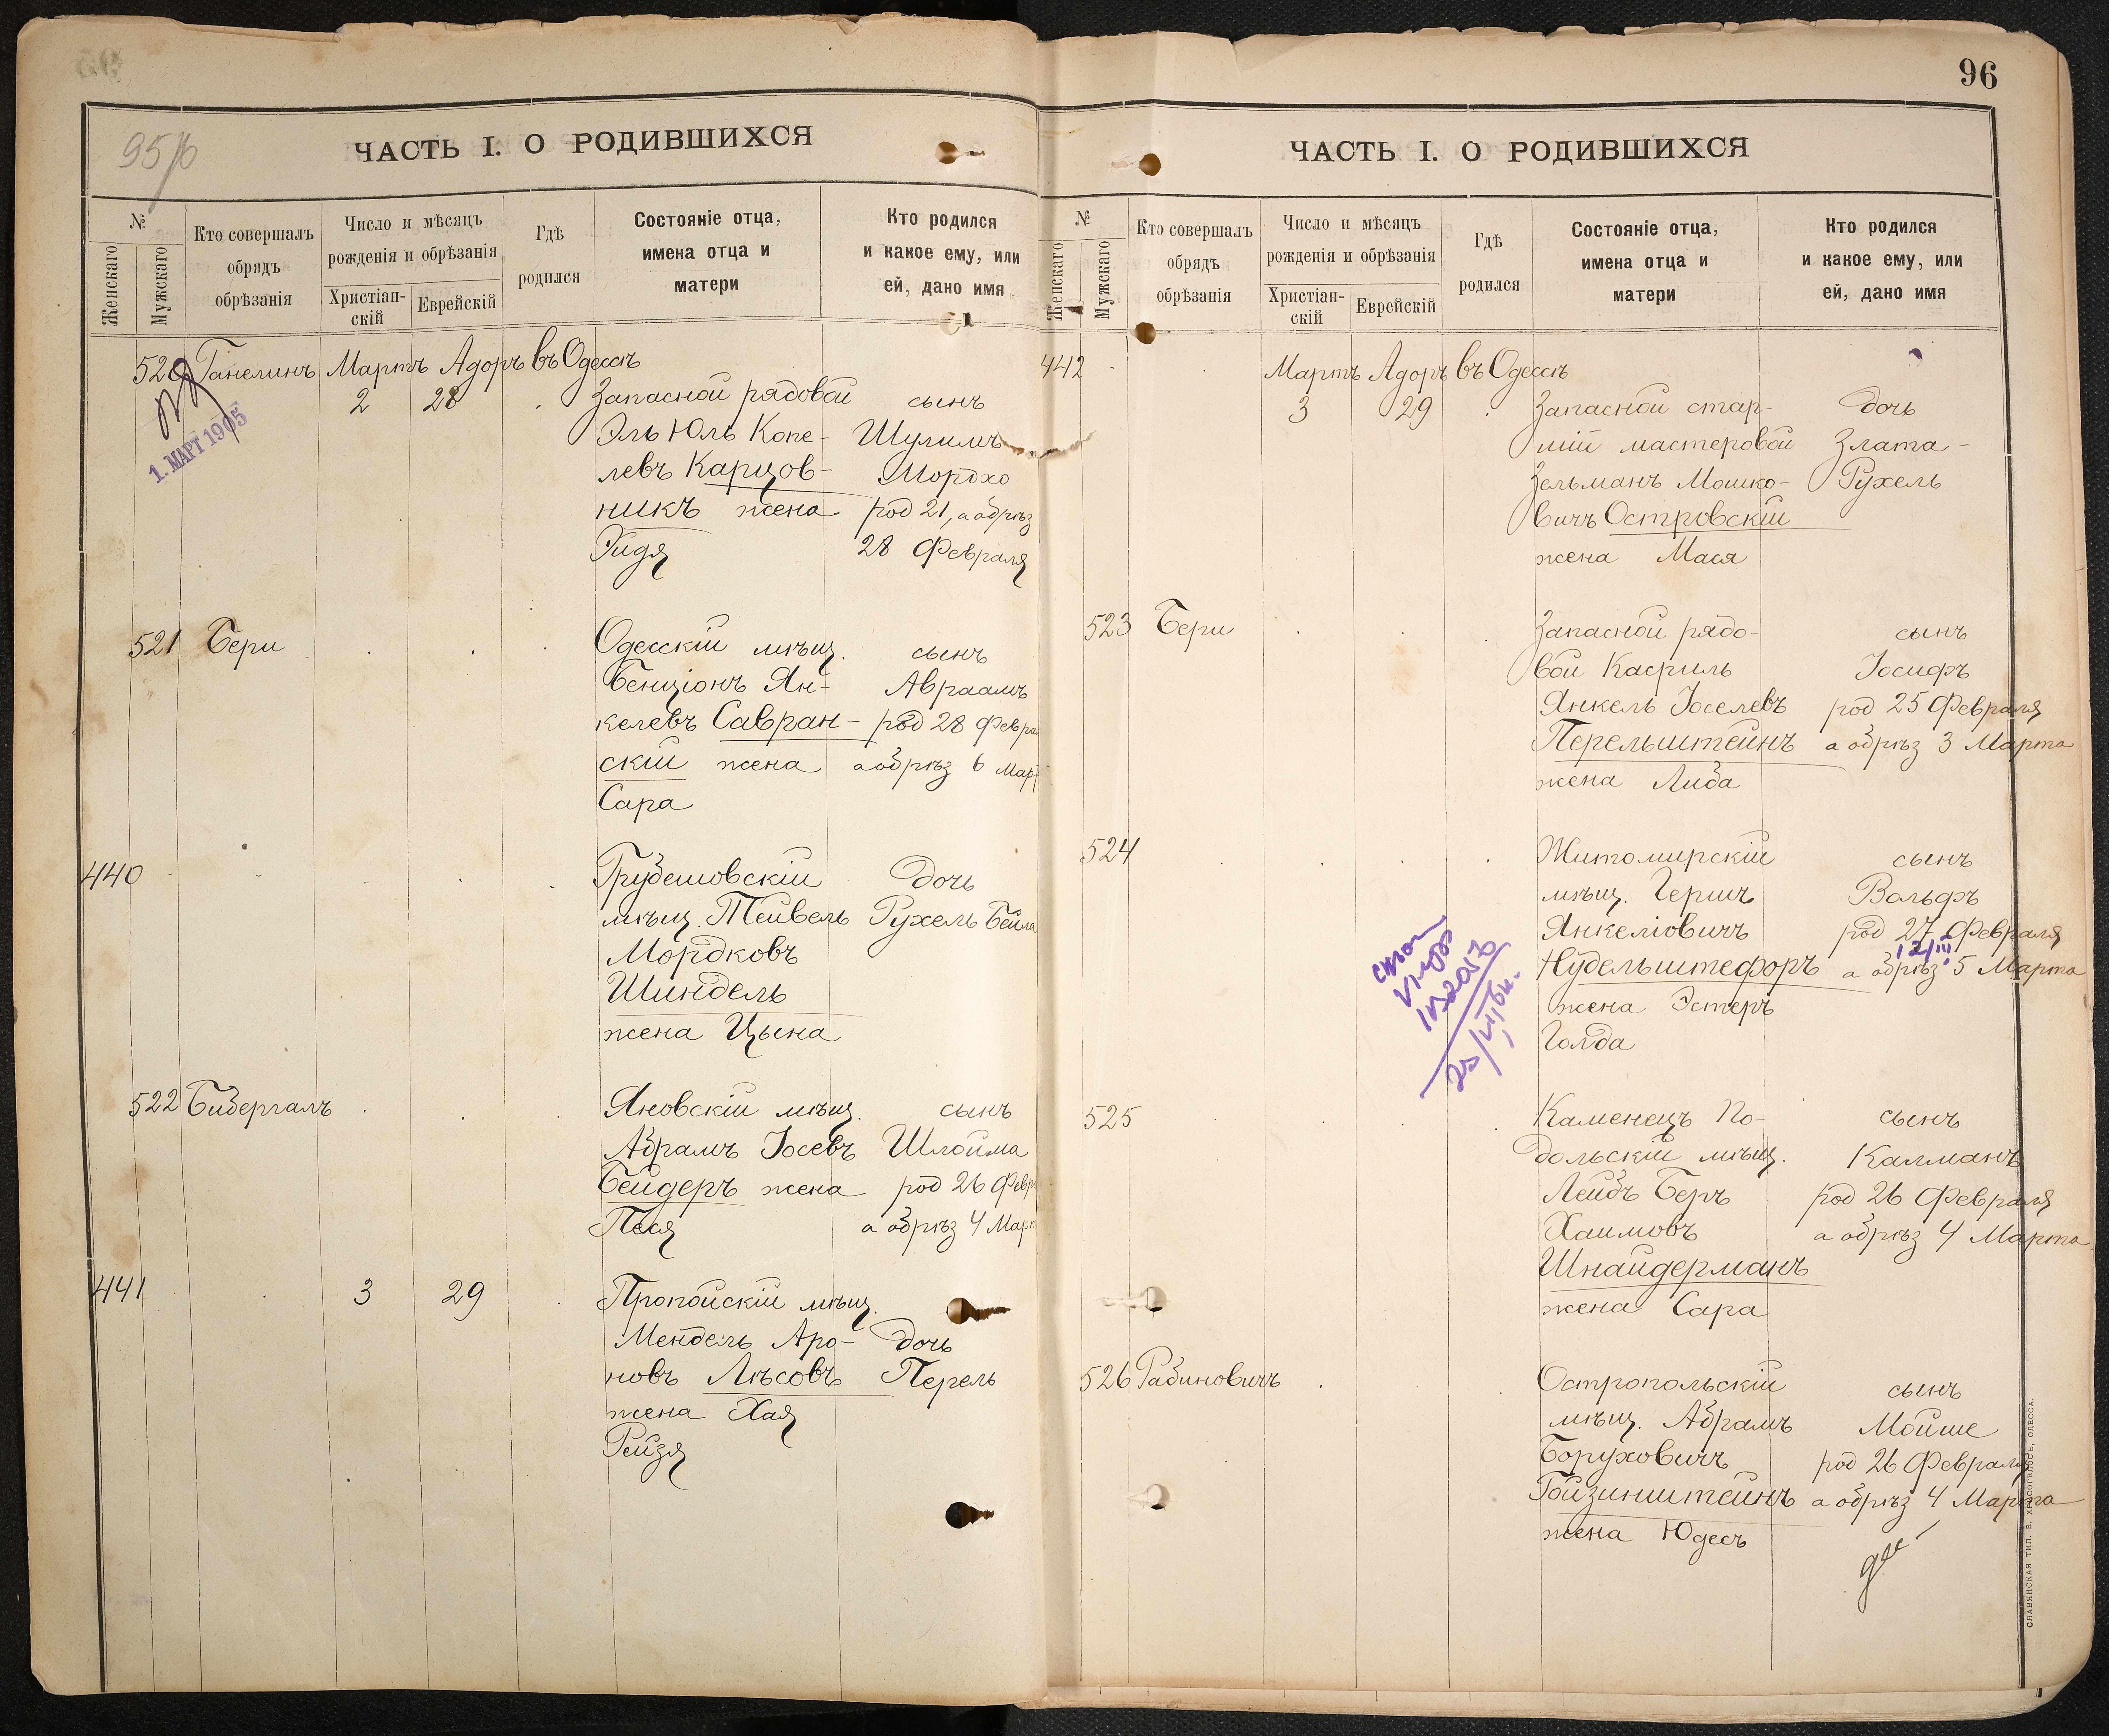 95/96
ЧАСТЬ I. О РОДИВШИХСЯ
№
Женскаго
Мужскаго
Кто совершалъ
обрядъ
обрѣзанія
Число и мѣсяцъ
рожденія и обрѣзанія
Христіан-
скій
Еврейскій
Гдѣ
родился
Состояніе отца,
имена отца и
матери
Кто родился
и какое ему, или
ей, дано имя
520 Ганелинъ Мартъ Адоръ въ Одессѣ
2 28 Запасной рядовой сынъ
Эль Юль Копе- Шулимъ
левъ Карцов- Мордхо
никъ жена род 21, а обрѣз
Гидя 28 Февраля
1. МАРТ 1905
521 Бери Одесскій мѣщ. сынъ
Бенціонъ Ян- Авраамъ
келевъ Савран- род 28 Февра
скій жена а обрѣз 6 Март
Сара
440 Грубешовскій дочь
мѣщ. Тейвель Рухель Бейла
Мордковъ
Шиндель
жена Цына
522 Бибергалъ Яновскій мѣщ. сынъ
Абрамъ Іосевъ Шлойма
Бейдеръ жена род 26 Февра
Песя а обрѣз 4 Март
441 3 29 Пропойскій мѣщ.
Мендель Аро- дочь
новъ Лѣсовъ Перель
жена Хая
Рейзя
96
ЧАСТЬ I. О РОДИВШИХСЯ
№
Женскаго
Мужскаго
Кто совершалъ
обрядъ
обрѣзанія
Число и мѣсяцъ
рожденія и обрѣзанія
Христіан-
скій
Еврейскій
Гдѣ
родился
Состояніе отца,
имена отца и
матери
Кто родился
и какое ему, или
ей, дано имя
442 Мартъ Адоръ въ Одессѣ
3 29 Запасной стар- дочь
шій мастеровой Злата-
Зельманъ Мошко- Рухель
вичъ Островскій
жена Мася
523 Бери Запасной рядо- сынъ
вой Касриль Іосифъ
Янкель Іоселевъ род 25 Февраля
Перельштейнъ а обрѣз 3 Марта
жена Либа
524 Житомирскій сынъ
мѣщ. Гершъ Вольфъ
Янкеліовичъ род 27 Февраля
12/III
Нудельштефоръ а обрѣз 5 Марта
жена Эстеръ
Голда
525 Каменецъ По- сынъ
дольскій мѣщ. Калманъ
Лейбъ Беръ род 26 Февраля
Хаимовъ а обрѣз 4 Марта
Шнайдерманъ
жена Сара
526 Рабиновичъ Остропольскій сынъ
мѣщ. Абрамъ Мойше
Боруховичъ род 26 Февраля
Гойзинштейнъ а обрѣз 4 Марта
жена Юдесъ
СЛАВЯНСКАЯ ТИП. Е. ХРИСОГЕЛОСЪ, ОДЕССА.